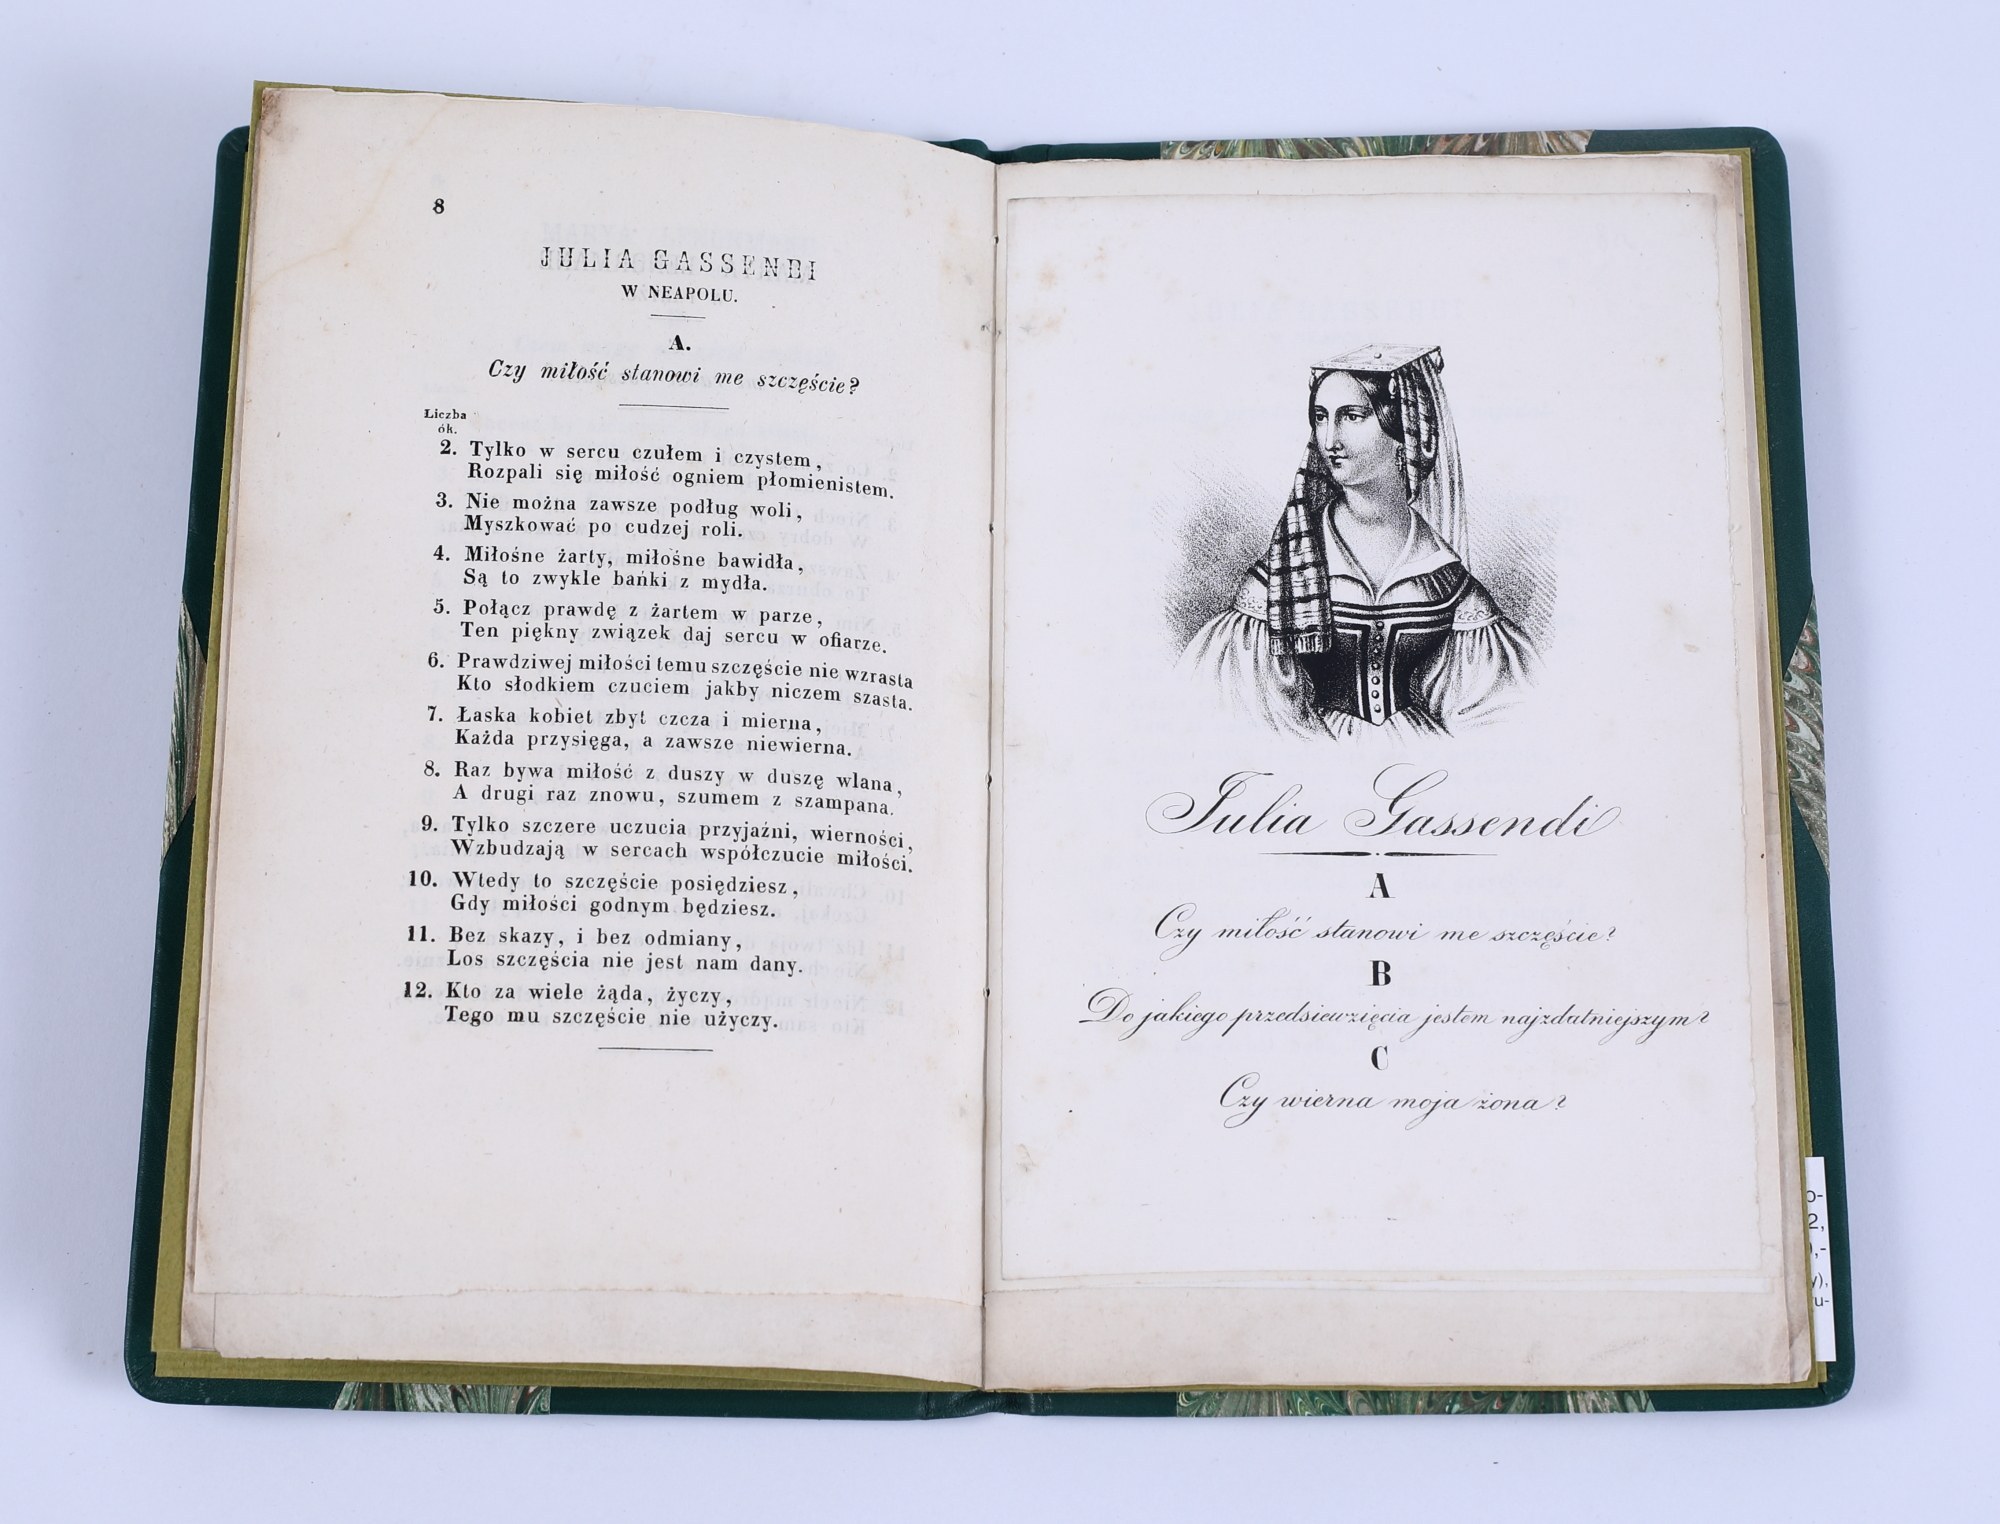 8
JULIA GASSENDI
W NEAPOLU.
A.
Czy miłość stanowi me szczęście?
Liczba
ók.
2. Tylko w sercu czułem i czystem,
Rozpali się miłość ogniem płomienistem.
3. Nie można zawsze podług woli,
Myszkować po cudzej roli.
4. Miłośne żarty, miłośne bawidła,
Są to zwykle bańki z mydła.
5. Połącz prawdę z żartem w parze,
Ten piękny związek daj sercu w ofiarze.
6. Prawdziwej miłości temu szczęście nie wzrasta
Kto słodkiem czuciem jakby niczem szasta.
7. Łaska kobiet zbyt czcza i mierna,
Każda przysięga, a zawsze niewierna.
8. Raz bywa miłość z duszy w duszę wlana,
A drugi raz znowu, szumem z szampana.
9. Tylko szczere uczucia przyjaźni, wierności,
Wzbudzają w sercach współczucie miłości.
10. Wtedy to szczęście posiędziesz,
Gdy miłości godnym będziesz.
11. Bez skazy, i bez odmiany,
Los szczęścia nie jest nam dany.
12. Kto za wiele żąda, życzy,
Tego mu szczęście nie użyczy.
Julia Gassendi
A
Czy miłość stanowi me szczęście?
B
Do jakiego przedsiewzięcia jestem najzdatniejszym?
C
Czy wierna moja żona?
o-
2,
),-
y),
u-